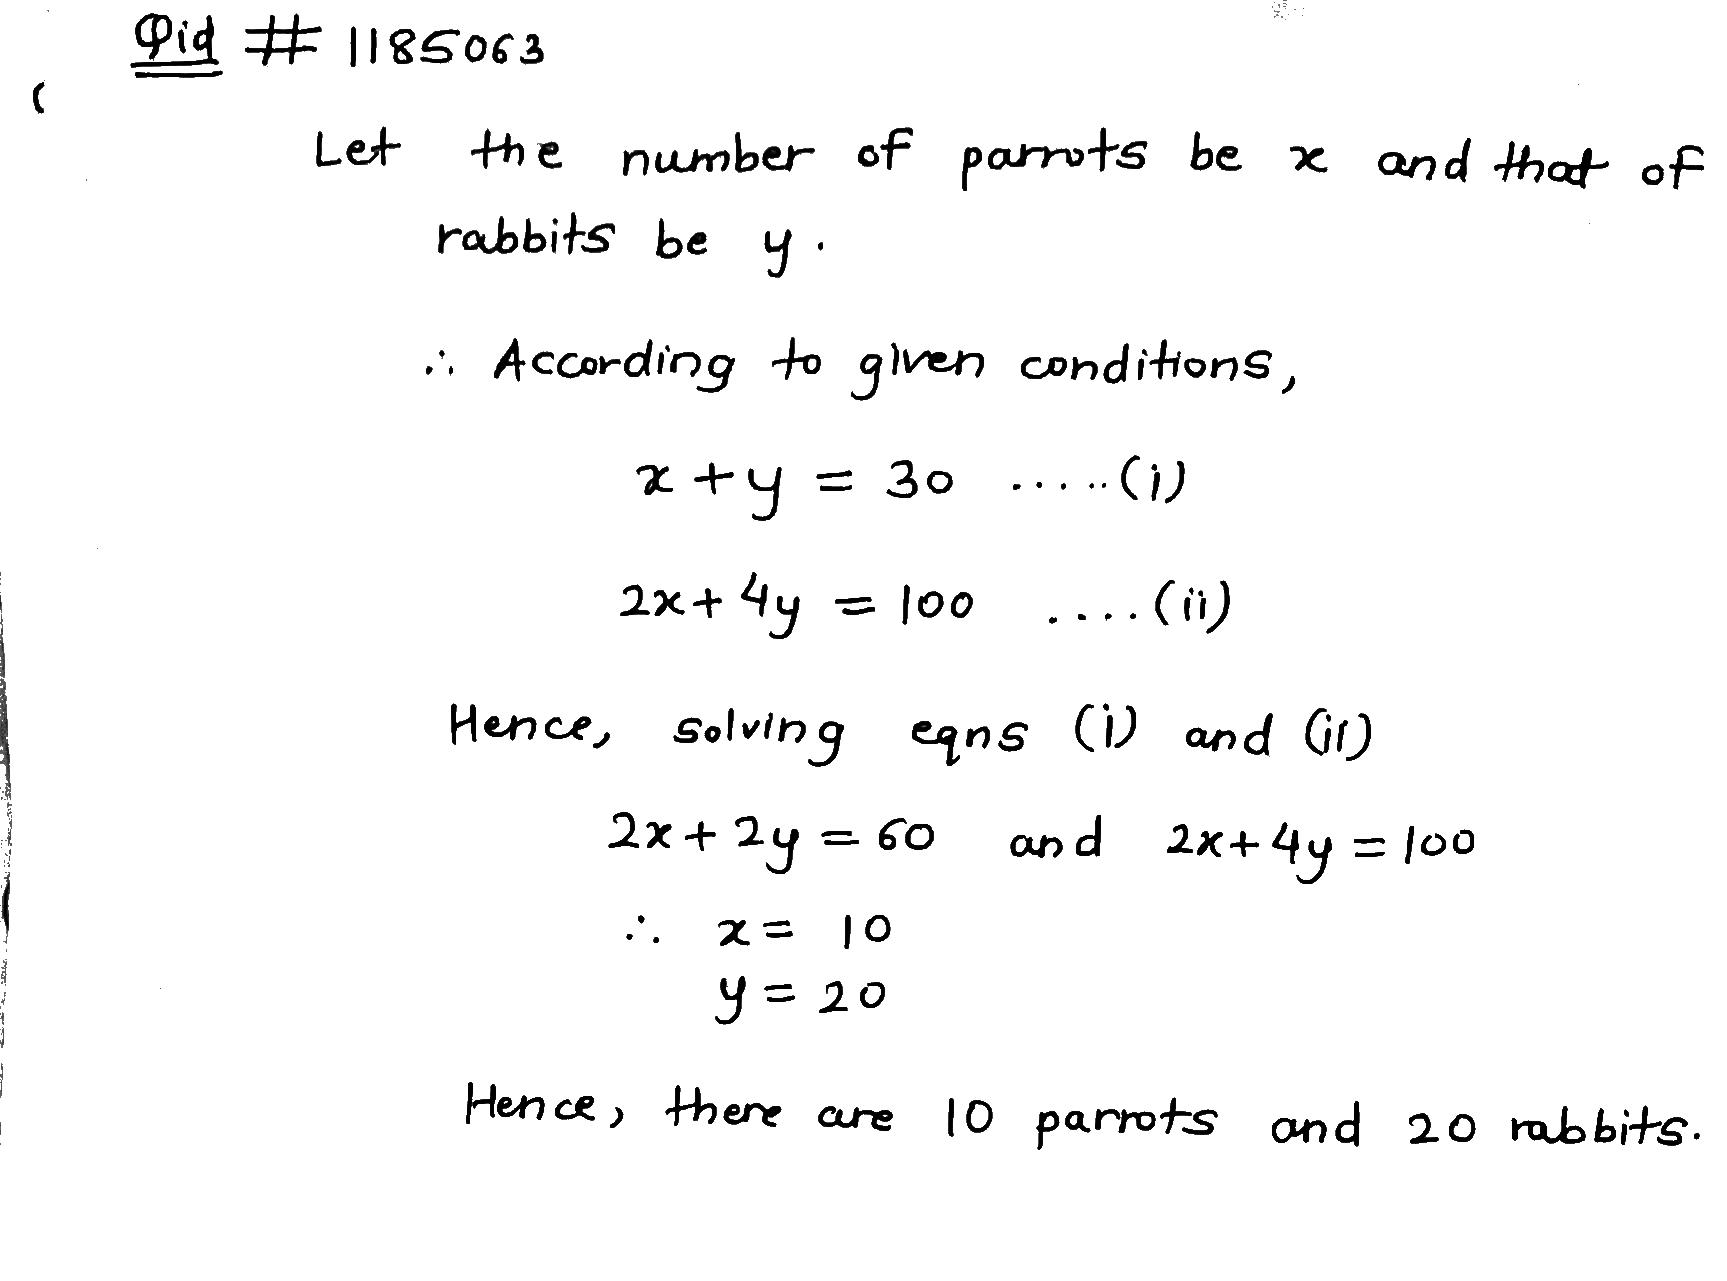 Qid # 1185063
Let the number of parrots be x and that of
rabbits be y.
∴ According to given conditions,
x + y = 30 .....(i)
2x + 4y = 100 ....(ii)
Hence, solving eqns (i) and (ii)
2x + 2y = 60 and 2x + 4y = 100
∴ x = 10
y = 20
Hence, there are 10 parrots and 20 rabbits.